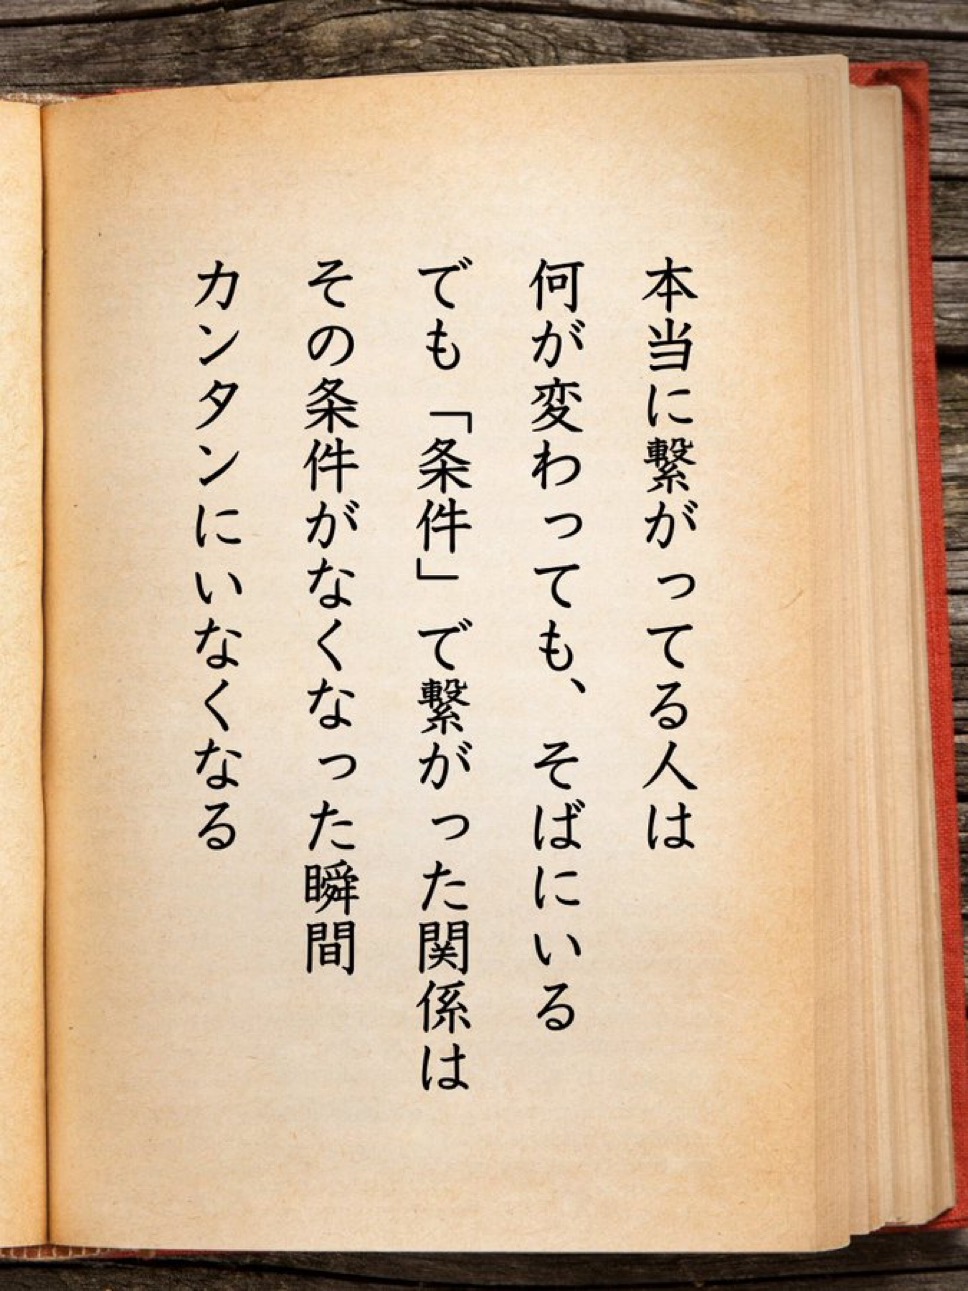 本当に繋がってる人は
何が変わっても、そばにいる
でも「条件」で繋がった関係は
その条件がなくなった瞬間
カンタンにいなくなる